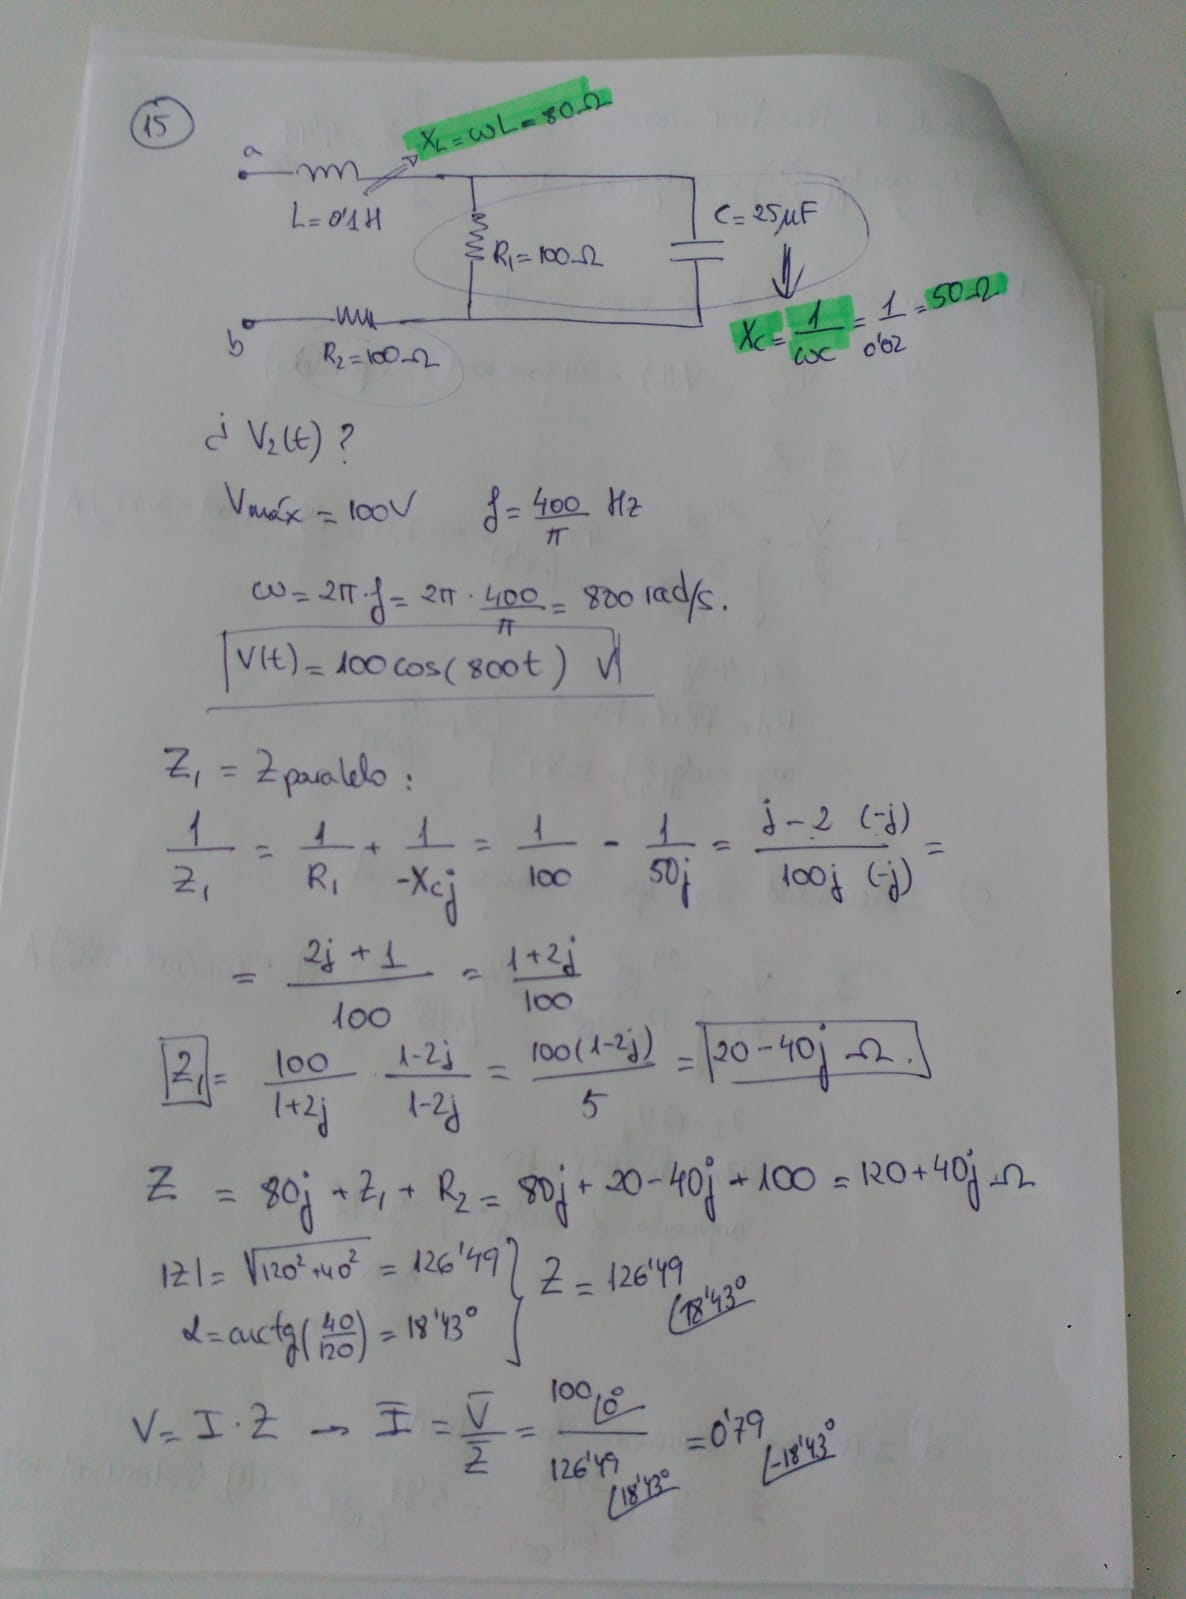 15
a
X_L = ωL = 80Ω
L = 0'1H
R₁ = 100Ω
C = 25μF
X_C = 1/ωC = 1/0'02 = 50Ω
b
R₂ = 100Ω
¿ V₂(t) ?
Vmáx = 100V f = 400/π Hz
ω = 2π·f = 2π · 400/π = 800 rad/s.
V(t) = 100 cos(800t) V
Z₁ = Z paralelo :
1/Z₁ = 1/R₁ + 1/-X_Cj = 1/100 - 1/50j = j-2 (-j)/100j (-j) =
= 2j + 1/100 = 1+2j/100
Z₁ = 100/1+2j · 1-2j/1-2j = 100(1-2j)/5 = 20-40j Ω.
Z = 80j + Z₁ + R₂ = 80j + 20 - 40j + 100 = 120 + 40j Ω
|Z| = √120² + 40² = 126'49 } Z = 126'49 ∠18'43°
α = arctg(40/120) = 18'43°
V = I · Z → I̅ = V̅/Z̅ = 100∠0°/126'49∠18'43° = 0'79∠-18'43°